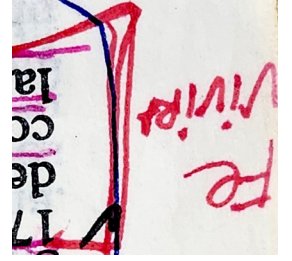 Fe
Vivirá
17
de
co
la